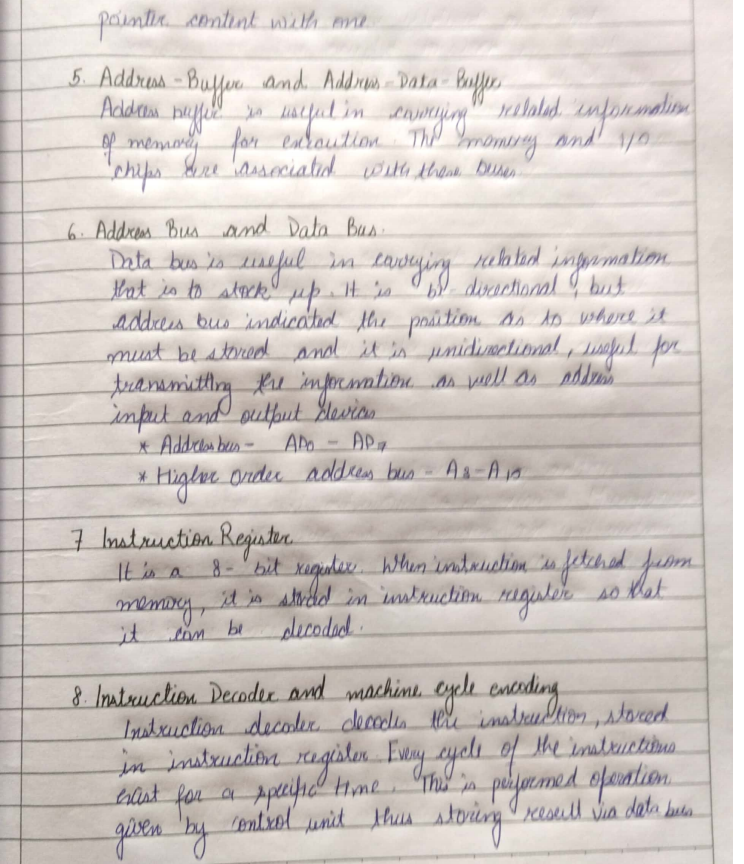 pointer content with one
5. Address-Buffer and Address-Data-Buffer
Address buffer is useful in carrying related information
of memory for execution. The memory and I/O
chips are associated with these buses
6. Address Bus and Data Bus.
Data bus is useful in carrying related information
that is to stock up. It is bi-directional, but
address bus indicated the position as to where it
must be stored and it is unidirectional, useful for
transmitting the information as well as address
input and output devices
* Address bus - AD0 - AD7
* Higher order address bus - A8-A15
7 Instruction Register
It is a 8-bit register. When instruction is fetched from
memory, it is stored in instruction register so that
it can be decoded.
8. Instruction Decoder and machine cycle encoding
Instruction decoder decodes the instruction, stored
in instruction register. Every cycle of the instructions
exist for a specific time. This is performed operation
given by control unit thus storing result via data bus